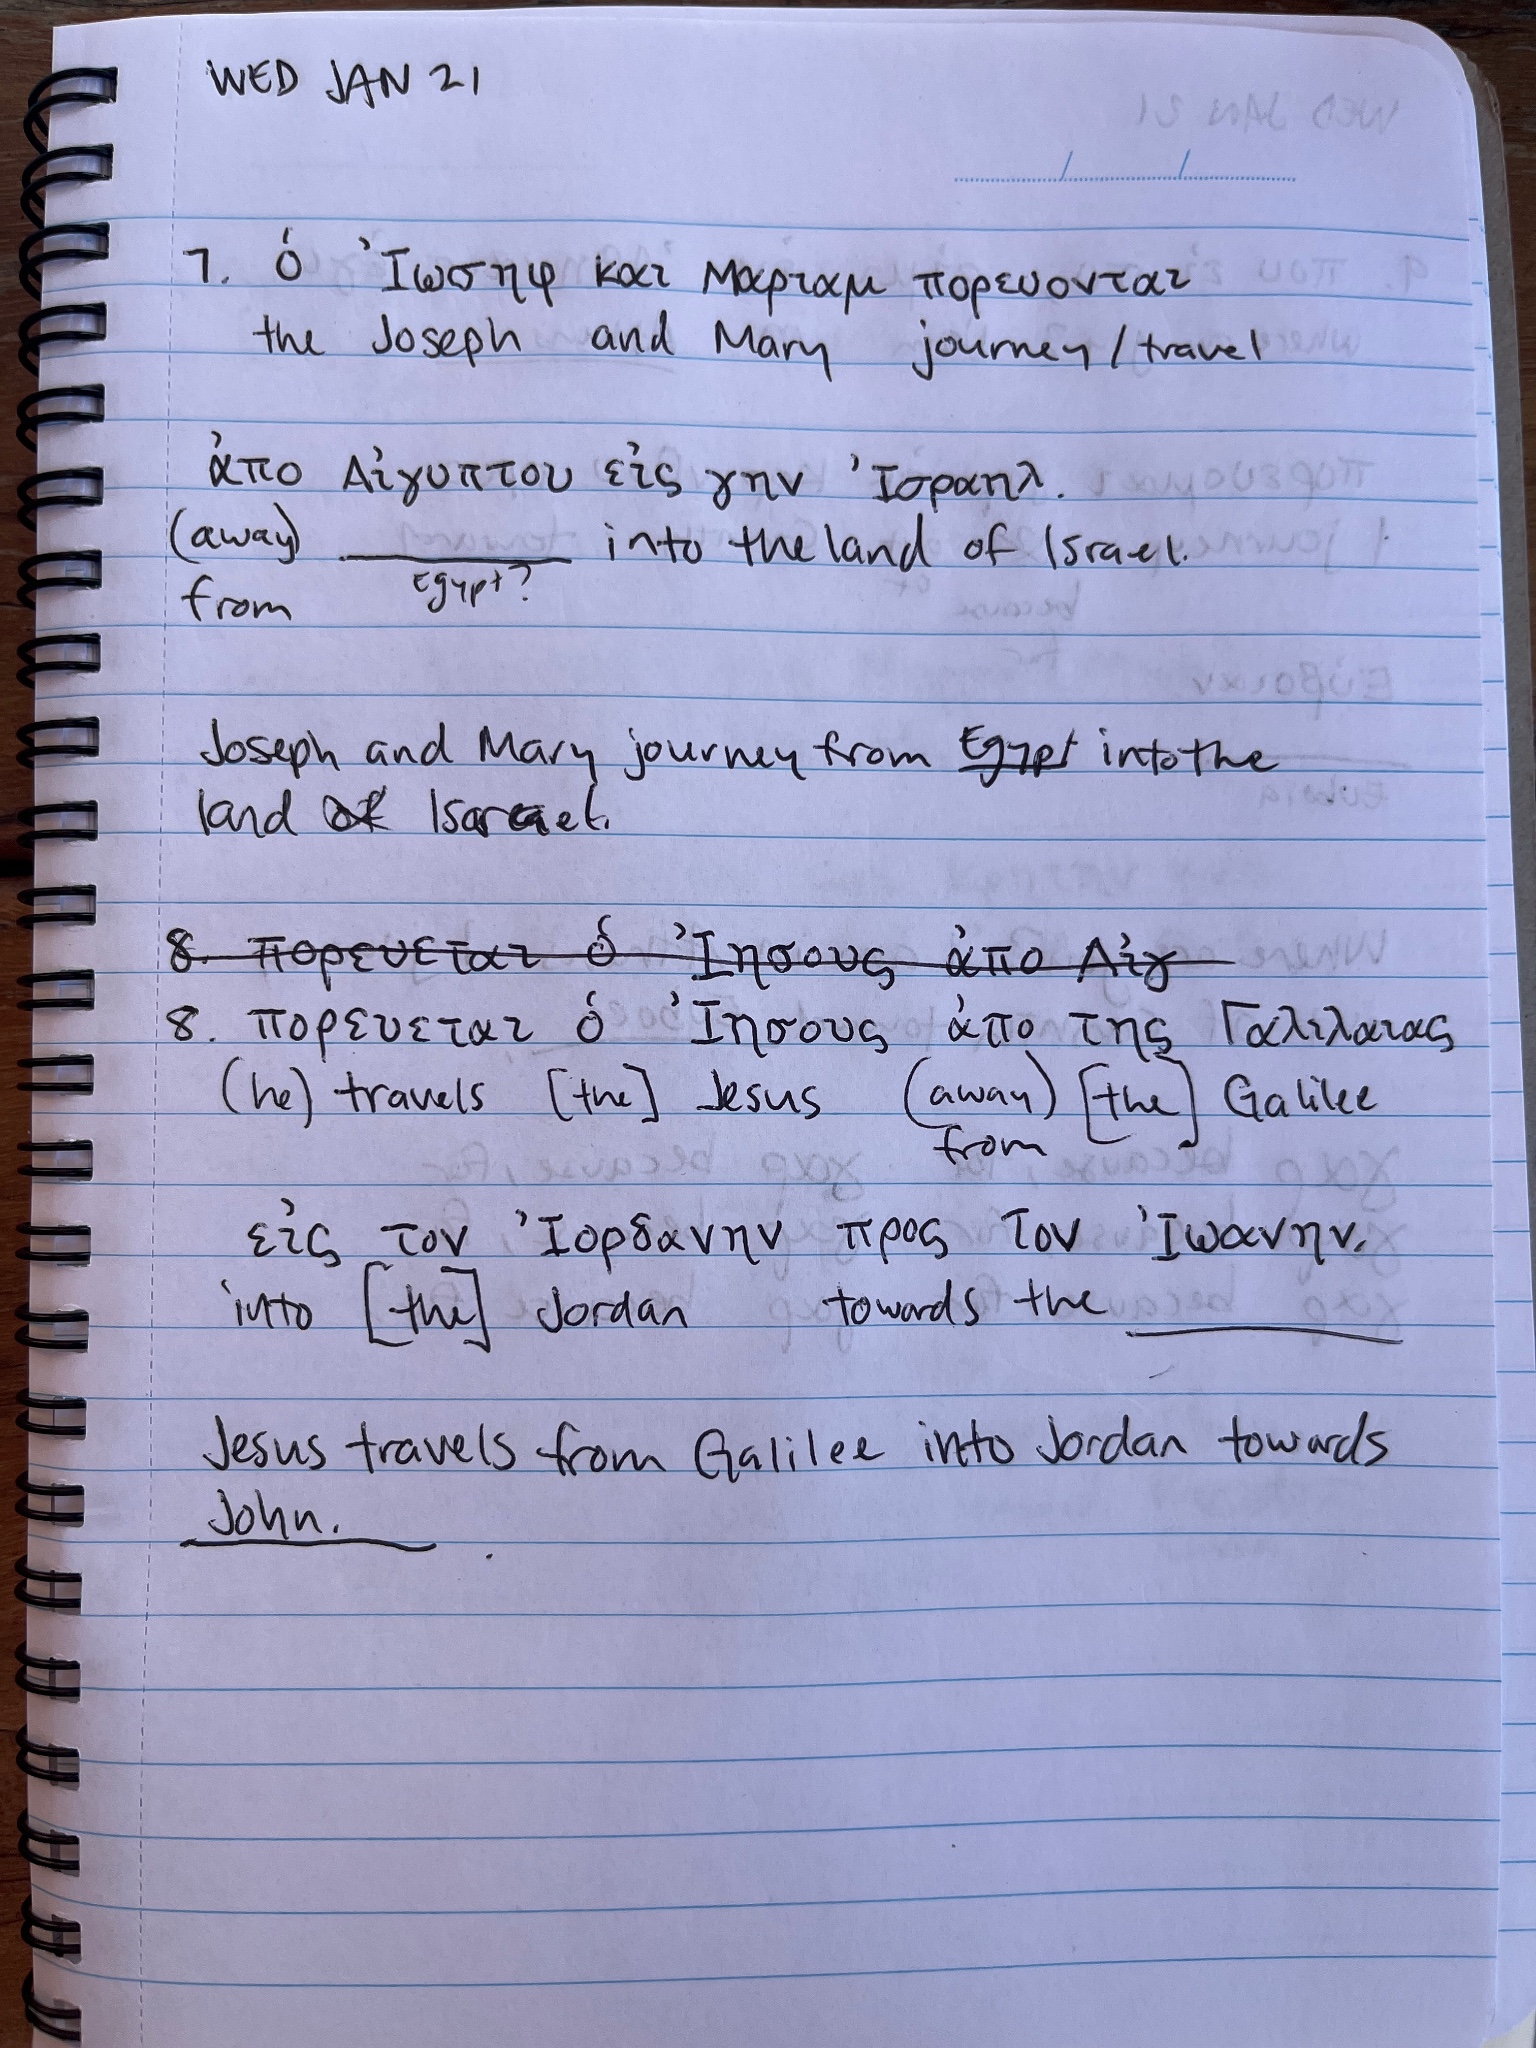 WED JAN 21
7. ὁ Ἰωσηφ και Μαριαμ πορευονται
the Joseph and Mary journey / travel
ἀπο Αἰγυπτου εἰς γην Ἰσραηλ.
(away) ________ into the land of Israel.
from Egypt?
Joseph and Mary journey from Egypt into the
land of Israel.
8. πορευεται ὁ Ἰησους ἀπο Αἰγ
8. πορευεται ὁ Ἰησους ἀπο της Γαλιλαιας
(he) travels [the] Jesus (away) [the] Galilee
from
εἰς τον Ἰορδανην προς τον Ἰωανην.
into [the] Jordan towards the ________
Jesus travels from Galilee into Jordan towards
John.